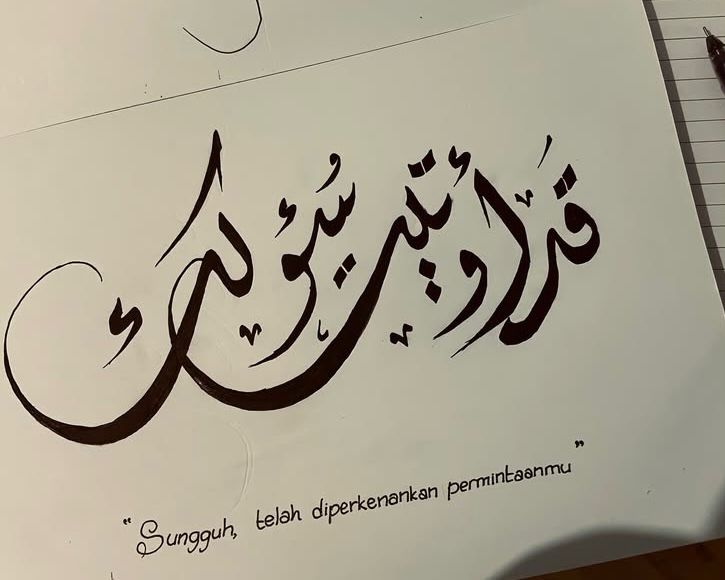 قَد أوتيت سُؤلك
"Sungguh, telah diperkenankan permintaanmu"